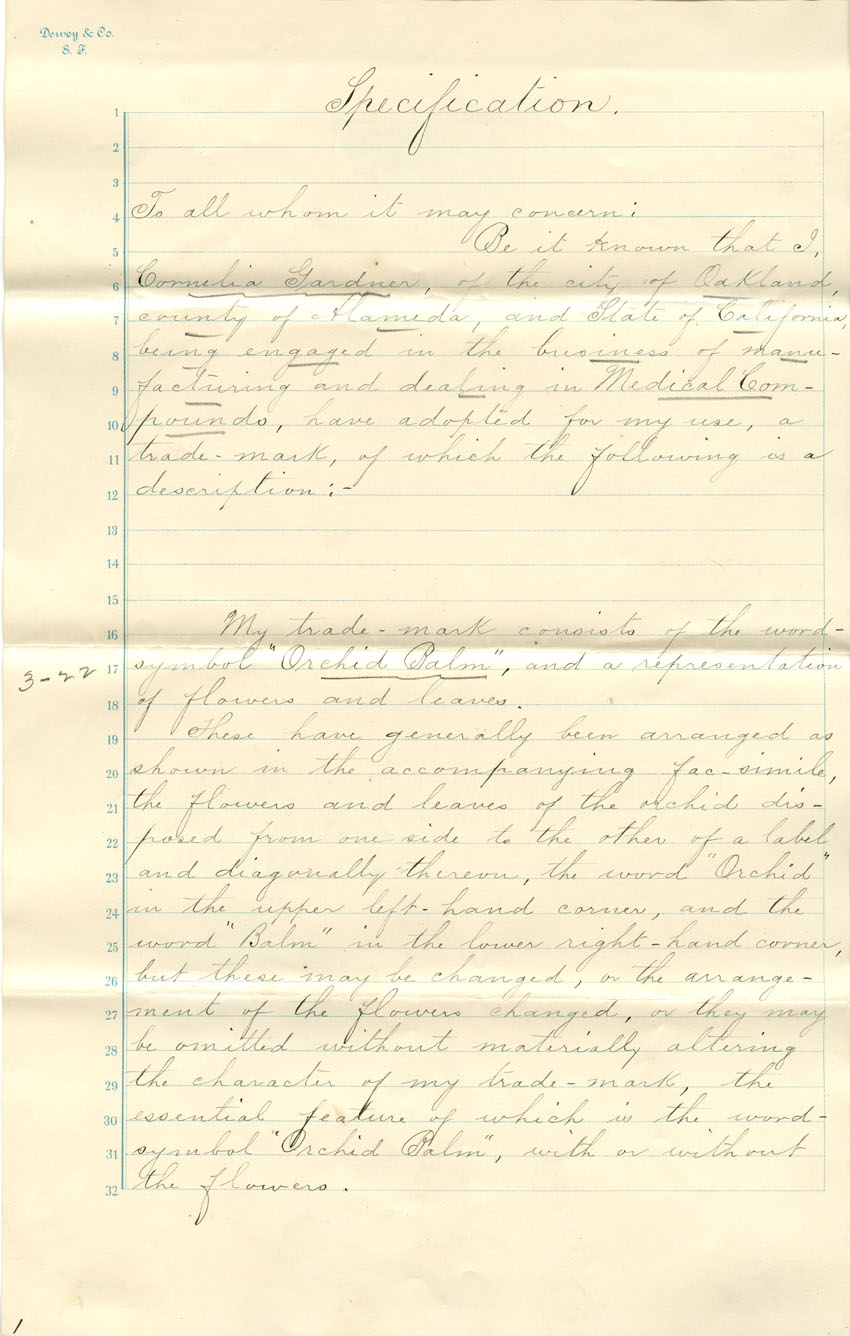 Dewey & Co.
S. F.
Specification.
1
2
3
4 To all whom it may concern:
5 Be it known that I,
6 Cornelia Gardner, of the city of Oakland,
7 county of Alameda, and State of California,
8 being engaged in the business of manu-
9 facturing and dealing in Medical Com-
10 pounds, have adopted for my use, a
11 trade-mark, of which the following is a
12 description:-
13
14
15
16 My trade-mark consists of the word-
3-22
17 symbol "Orchid Balm", and a representation
18 of flowers and leaves.
19 These have generally been arranged as
20 shown in the accompanying fac-simile,
21 the flowers and leaves of the orchid dis-
22 posed from one side to the other of a label
23 and diagonally thereon, the word "Orchid"
24 in the upper left-hand corner, and the
25 word "Balm" in the lower right-hand corner,
26 but these may be changed, or the arrange-
27 ment of the flowers changed, or they may
28 be omitted without materially altering
29 the character of my trade-mark, the
30 essential feature of which is the word-
31 symbol "Orchid Balm", with or without
32 the flowers.
1